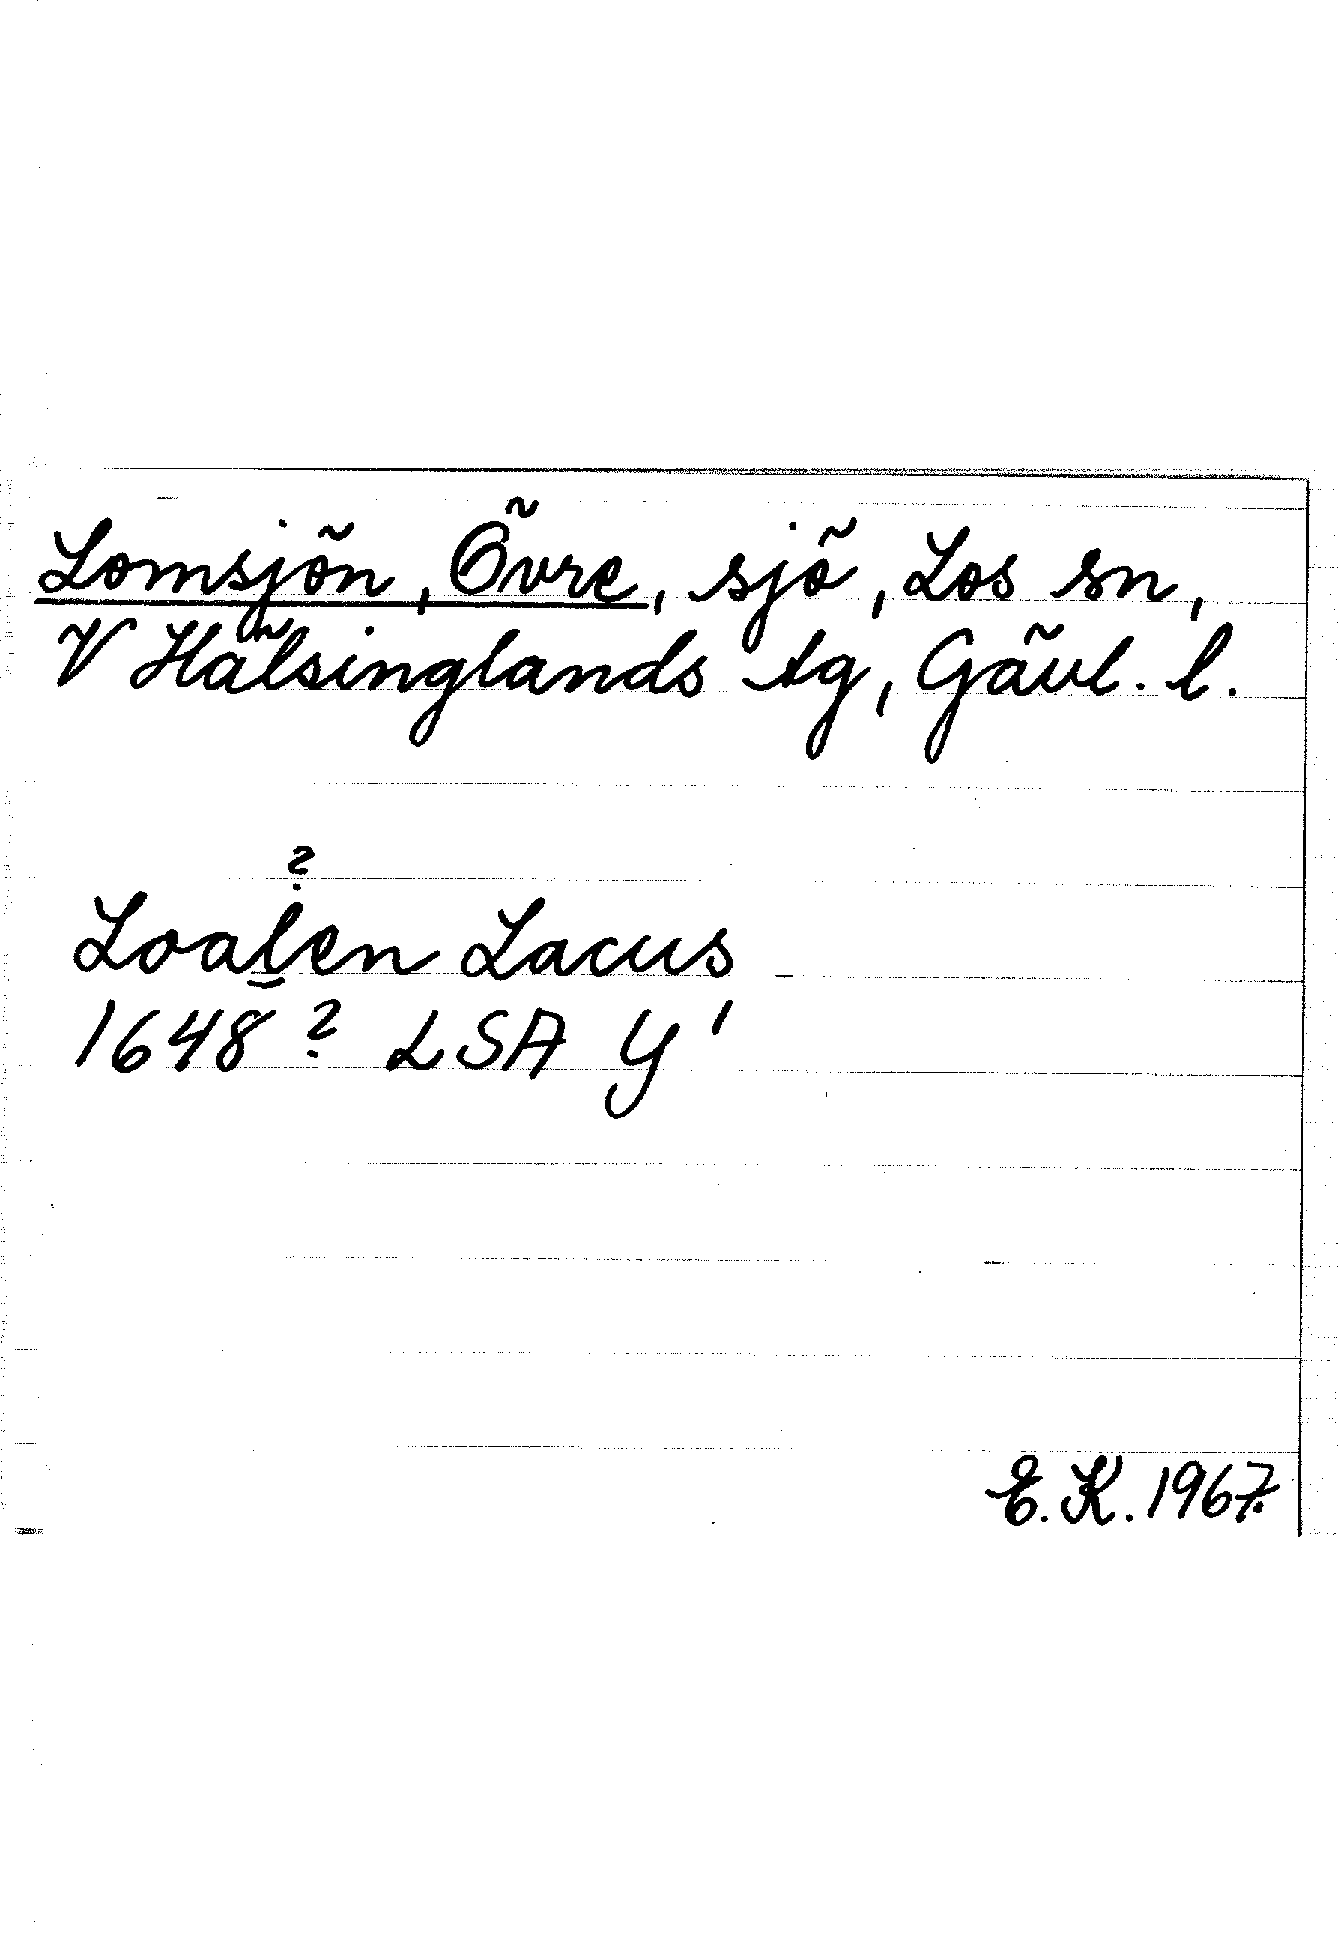 Lomsjön, Övre, sjö, Los sn,
V Hälsinglands tg, Gävl. l.
?
Loalen Lacus
1648? LSA Y'
E. K. 1967.